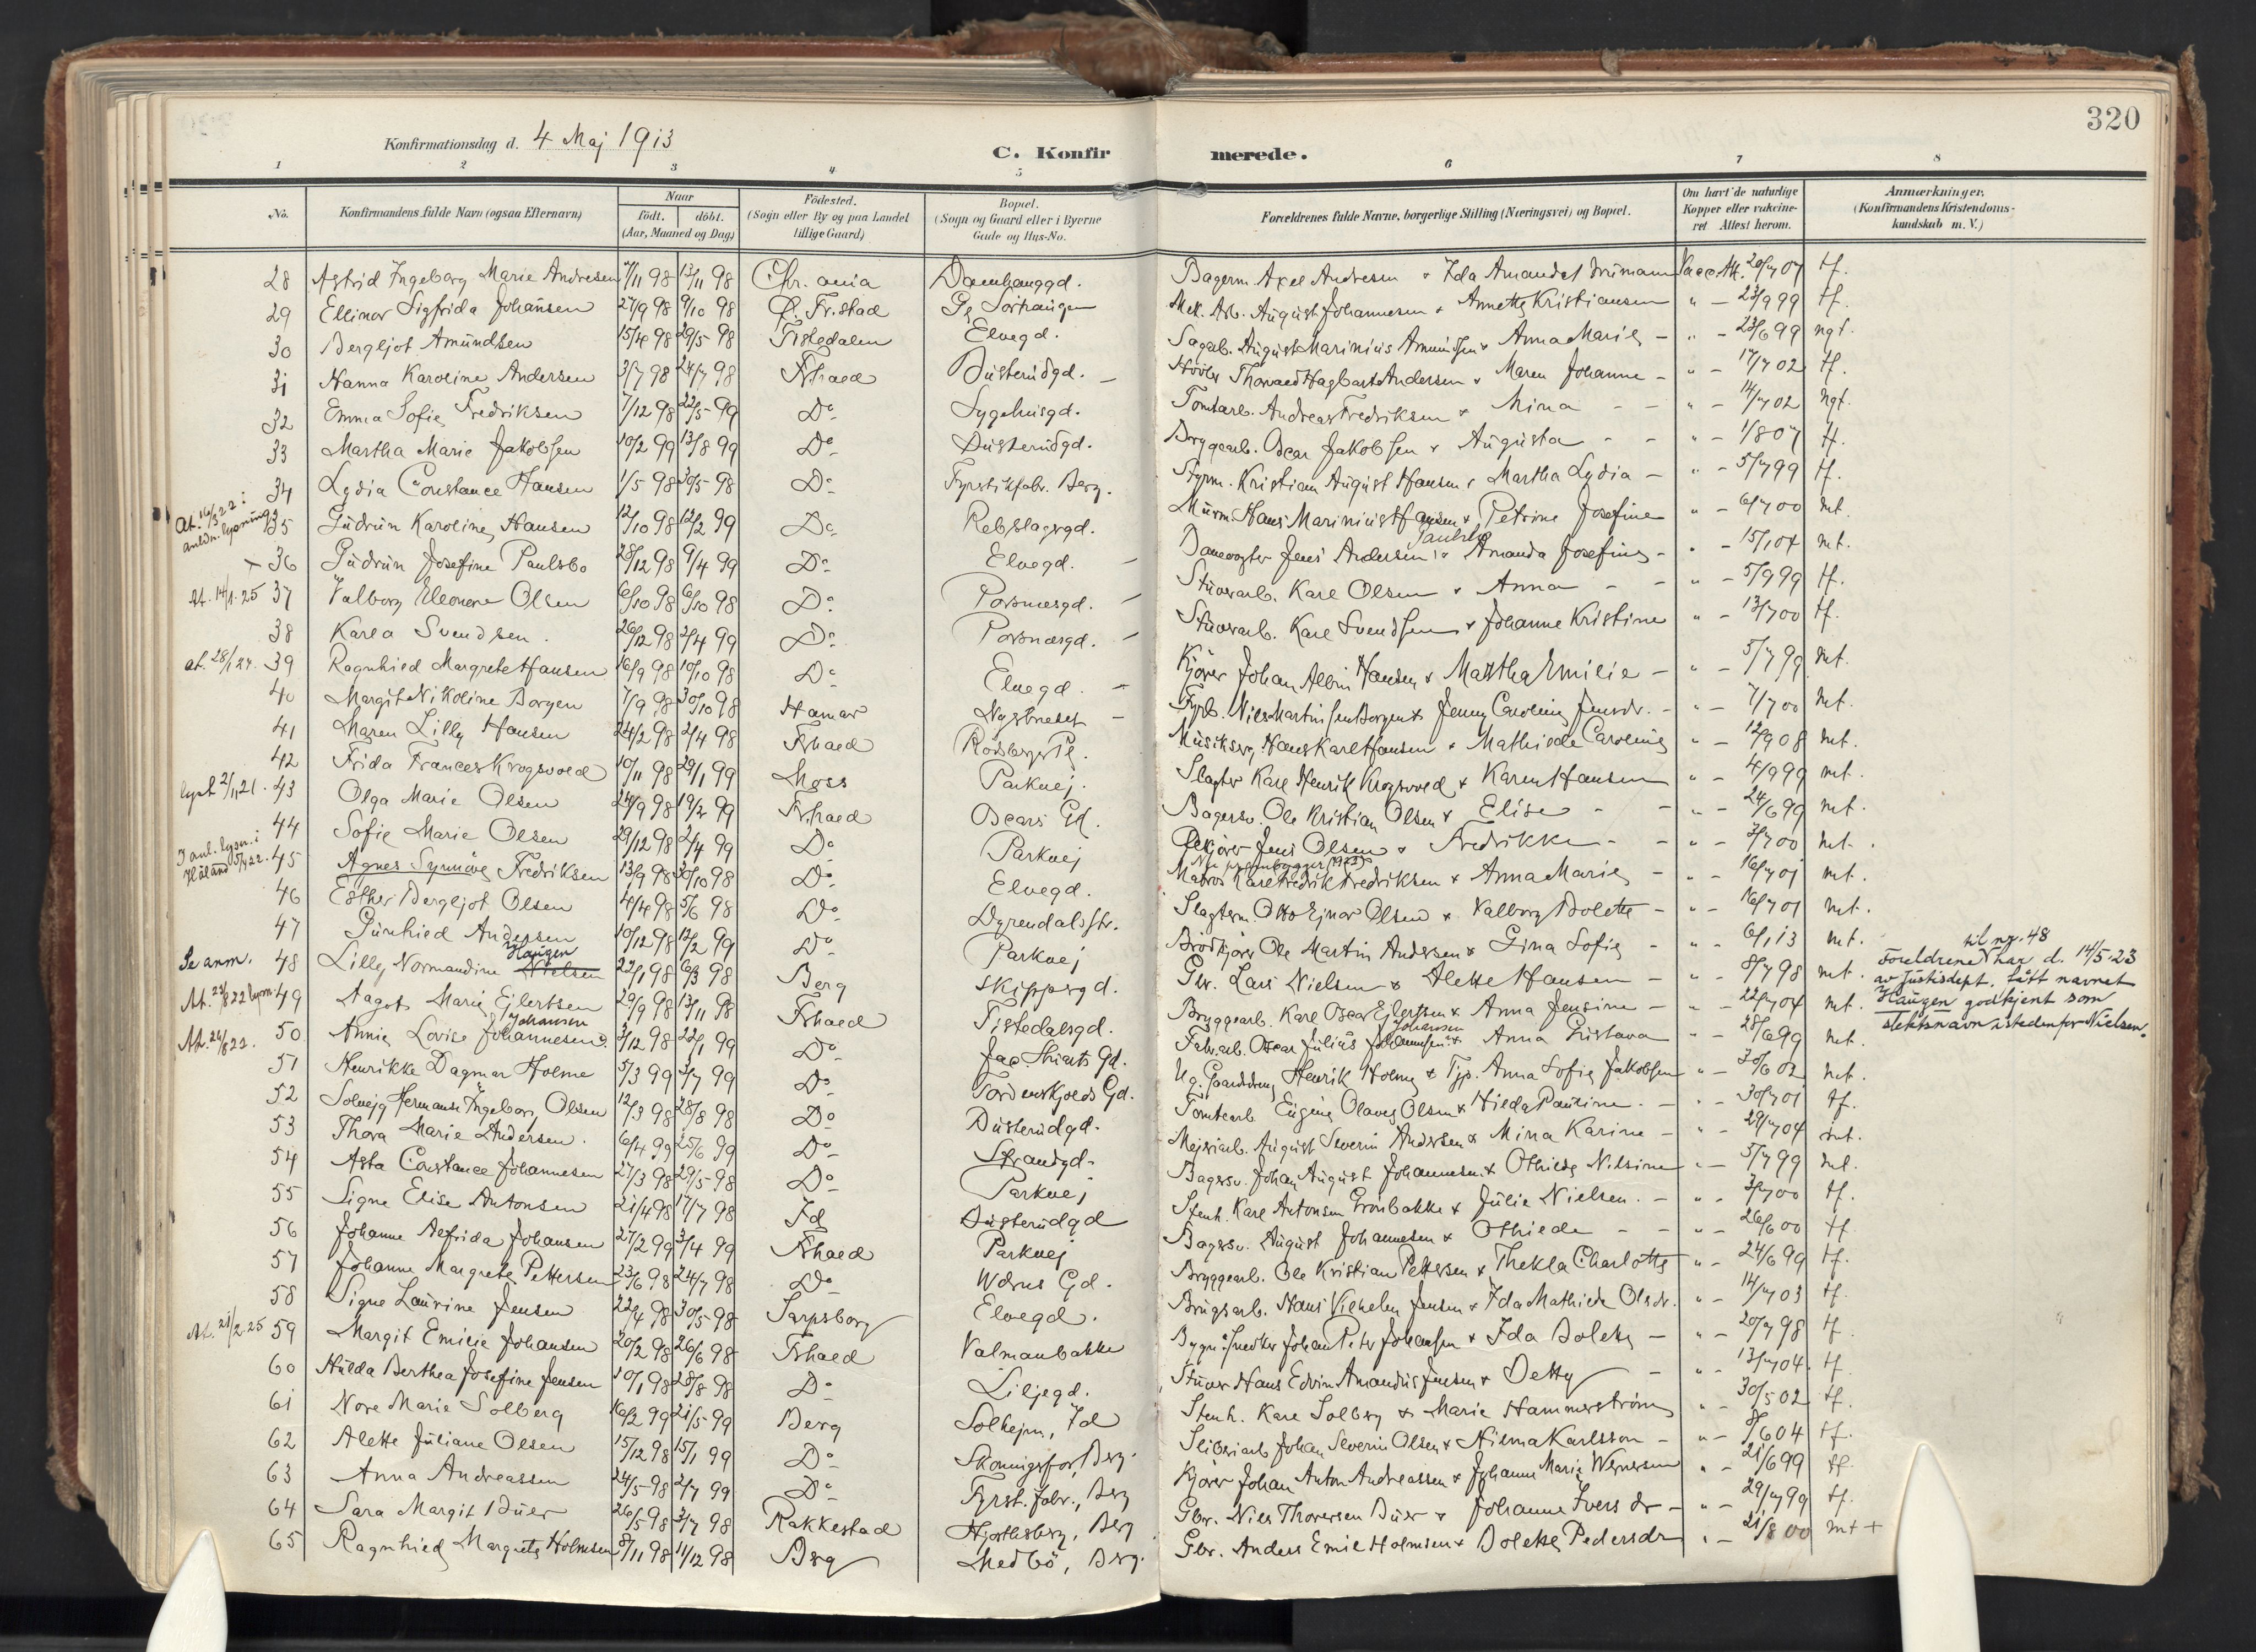 320
Konfirmationsdag d. 4 Maj 1913
C. Konfirmerede.
1 2 3 4 5 6 7 8
No. Konfirmandens fulde Navn (ogsaa Efternavn) Naar født. døbt. (Aar, Maaned og Dag) Fødested. (Sogn eller By og paa Landet tillige Gaard) Bopæl. (Sogn og Gaard eller i Byerne Gade og Hus-No. Forældrenes fulde Navne, borgerlige Stilling (Næringsvei) og Bopæl. Om havt de naturlige Kopper eller vakcineret Attest herom. Anmærkninger. (Konfirmandens Kristendomskundskab m. V.)
28 Astrid Ingeborg Marie Andresen 7/11 98 13/11 98 Chr.ania Damhauggd. Bagerm. Axel Andresen & Ida Vacc. Att. 20/7 07 tf.
29 Ellinor Sigfrida Johansen 27/9 98 9/10 98 Ø. Fr.stad Mek. Arb. August Johannesen & Annette Kristiansen " - 23/9 99 tf.
30 Bergljot Amundsen 15/4 98 29/5 98 Tistedalen Elvegd. Sagarb. August Marinius Amundsen & Anna Marie - " - 23/6 99 ngt.
31 Nanna Karoline Andersen 3/7 98 24/7 98 Frhald Busterudgd. Thorvald Hagbart Andersen & Maren Johanne - " - 17/7 02 tf.
32 Emma Sofie Fredriksen 7/12 98 22/5 99 Do Sygehusgd. Tomtarb. Andreas Fredriksen & Mina - - " - 14/7 02 ngt.
33 Martha Marie Jakobsen 10/2 99 13/8 99 Do Busterudgd. Bryggearb. Oscar Jakobsen & Augusta - - " - 1/8 07 tf.
34 Lydia Constance Hansen 1/5 98 30/5 98 Do Fyrstikfabr. Berg. Styrm. Kristian August Hansen & Martha Lydia - " - 5/7 99 tf.
At. 16/3 22 i anldn. lysning
35 Gudrun Karoline Hansen 12/10 98 12/2 99 Do Rebslagergd. Murm. Hans Marinius Hansen & Petrine Josefine " - 6/7 00 mt.
+ 36 Gudrun Josefine Paulsbo 28/12 98 9/4 99 Do Elvegd. - Damvogter Jens Andersen Paulsbo & Amanda Josefine - " - 15/1 04 mt.
At. 14/1 25 37 Valborg Eleonore Olsen 6/10 98 6/10 98 Do Porsnesgd. - Stuerarb. Karl Olsen & Anna - - " - 5/9 99 tf.
38 Karla Svendsen. 26/12 98 2/4 99 Do Porsnæsgd. - Stuerarb. Karl Svendsen & Johanne Kristine " - 13/7 00 tf.
at. 28/1 27. 39 Ragnhild Margrete Hansen 16/9 98 10/10 98 Do Elvegd. - Kjører Johan Albin Hansen & Martha Emilie - " - 5/7 99 mt.
40 Margit Nikoline Borgen 7/9 98 30/10 98 Hamar - Fyrb. Nils Martinsen Borgen & Jenny Caroline Jensdr. - " - 7/7 00 mt.
41 Maren Lilly Hansen 24/2 98 2/4 98 Frhald Rødsberg Pl. Musikserg. Hans Karl Hansen & Mathilde Caroline " - 12/9 08 mt.
42 Frida Frances Krogsvold 10/11 98 29/1 99 Moss Parkvej. Slagter Karl Henrik Krogsvold & Karen Hansen " - 4/9 99 mt.
lyst 2/11 21. 43 Olga Marie Olsen 24/9 98 19/2 99 Frhald Oscars Gd. Bagersv. Ole Kristian Olsen & Elise - - " - 24/6 99 mt.
44 Sofie Marie Olsen 29/12 98 2/4 99 Do Parkvej Ølkjører Jens Olsen & Fredrikke - - " - 3/7 00 mt.
I anl. lysn. i Høland 5/4 22. 45 Agnes Synnøve Fredriksen 13/9 98 30/10 98 Do Elvegd. Matros Karl Fredrik Fredriksen & Anna Marie - " - 16/7 01 mt.
46 Esther Bergljot Olsen 4/4 98 5/6 98 Do Dyrendalsstr. Slagterm. Otto Ejnar Olsen & Valborg Bolette - " - 16/7 01 mt.
47 Gunhild Andersen 10/12 98 12/2 99 Do Parkvej Brødkjører Ole Martin Andersen & Gina Sofie - " - 6/1 13 mt.
Se anm. 48 Lilly Normandine Nielsen Haugen 22/1 98 6/3 98 Berg Skippergd. Gbr. Lars Nielsen & Alette Hansen - " - 8/7 98 mt.
til nr. 48
Foreldrene har d. 14/5-23
av Justisdept. fått navnet
Haugen godkjent som
slektsnavn istedenfor Nielsen.
At. 23/8 22 lysn. 49 Aagot Marie Ejlertsen 29/9 98 13/11 98 Frhald Tistedalsgd. Bryggearb. Karl Oscar Ejlertsen & Anna Jensine - " - 22/7 04 mt.
At. 24/8 22. 50 Annie Lovise Johannesen Johansen 3/12 98 22/1 99 Do Jac. Stuarts Gd. Fabr.arb. Oscar Julius Johannesen Johansen & Anna Gustava - " - 28/6 99 mt.
51 Henrikke Dagmar Holme 5/3 99 2/7 99 Do Tordenskjolds Gd. Ug. Gaarddreng Henrik Holme & Tjp. Anna Sofie Jakobsen " - 30/6 02 mt.
52 Solvejg Hermanse Ingeborg Olsen 12/3 98 28/8 98 Do Busterudgd. Tomtearb. Eugen Olaves Olsen & Hilda Pauline. - " - 30/7 01 tf.
53 Thora Marie Andersen. 6/4 99 25/6 99 Do Strandgd. Mejeriarb. August Severin Andersen & Mina Karine - " - 29/7 04 mt.
54 Asta Constance Johannesen 27/3 98 29/5 98 Do Parkvej Bagersv. Johan August Johannesen & Othilde Nilsine " - 5/7 99 mt.
55 Signe Elise Antonsen 21/4 98 17/7 98 Id Busterudgd Stenh. Karl Antonsen Grønbakke & Julie Nielsen. - " - 3/7 00 tf.
56 Johanne Alfrida Johansen 27/2 99 3/4 99 Frhald Parkvej Bagersv. August Johannesen & Othilde - - " - 26/6 00 tf
57 Johanne Margrete Pettersen 23/6 98 24/7 98 Do Wærns Gd. Bryggearb. Ole Kristian Pettersen & Thekla Charlotte " - 24/6 99 tf.
58 Signe Laurine Jensen 22/4 98 30/5 98 Sarpsborg Elvegd. Brugsarb. Hans Vilhelm Jensen & Ida Mathilde Olsdr. " - 14/7 03 tf.
At. 21/2 25 59 Margit Emilie Johansen 20/2 98 26/6 98 Frhald Valmanbakke Bygn.snedker Johan Peter Johansen & Ida Bolette - " - 20/7 98 tf
60 Hulda Berthea Josefine Jensen 10/1 98 28/8 98 Do Liljegd. Stuer Hans Edvin Amandus Jensen & Betty - " - 13/7 04. tf
61 Nore Marie Solberg 16/2 99 21/5 99 Berg Solhejm, Id Stenh. Karl Solberg & Marie Hammerstrøm " - 30/5 02 tf.
62 Alette Juliane Olsen 15/12 98 15/1 99 Do Skonningsfos, Berg. Sliberiarb. Johan Severin Olsen & Hilma Karlsson - " - 8/6 04 tf.
63 Anna Andreassen 24/5 98 2/7 99 Do Fyrst.fabr., Berg Kjører Johan Anton Andreassen & Johanne Marie Wernersen " - 21/6 99 tf.
64 Sara Margit Buer 26/5 98 3/7 98 Rakkestad Hjortsberg, Berg Gbr. Nils Thoresen Buer & Johanne Iversdr - " - 29/7 99 tf.
65 Ragnhild Margrete Holmsen 8/11 98 11/12 98 Berg Medbø, Berg. Gbr. Anders Emil Holmsen & Bolette Pedersdr " - 21/8 00 mt +